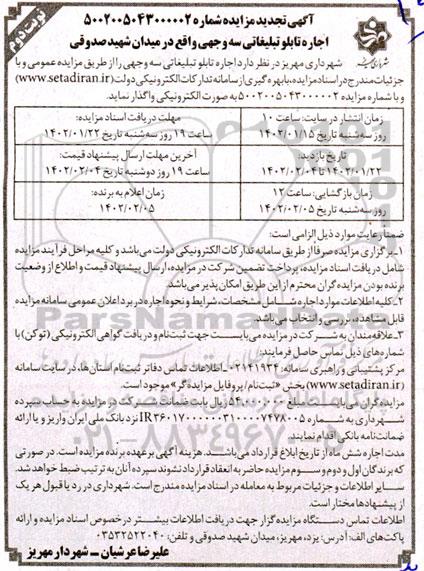 نوبت دوم
آگهی تجدید مزایده شماره ۵۰۰۲۰۰۵۰۴۳۰۰۰۰۰۲
اجاره تابلو تبلیغاتی سه وجهی واقع در میدان شهید صدوقی
شهرداری مهریز در نظر دارد اجاره تابلو تبلیغاتی سه وجهی را از طریق مزایده عمومی و با
جزئیات مندرج در اسناد مزایده، با بهره گیری از سامانه تدارکات الکترونیکی دولت (www.setadiran.ir)
و با شماره مزایده ۵۰۰۲۰۰۵۰۴۳۰۰۰۰۰۲ به صورت الکترونیکی واگذار نماید.
زمان انتشار در سایت: ساعت ۱۰
روز سه‌شنبه تاریخ ۱۴۰۲/۰۱/۱۵
مهلت دریافت اسناد مزایده:
ساعت ۱۹ روز سه‌شنبه تاریخ ۱۴۰۲/۰۱/۲۲
تاریخ بازدید:
۱۴۰۲/۰۱/۲۲ تا ۱۴۰۲/۰۲/۰۴
آخرین مهلت ارسال پیشنهاد قیمت:
ساعت ۱۹ روز دوشنبه تاریخ ۱۴۰۲/۰۲/۰۴
زمان بازگشایی: ساعت ۱۲
روز سه‌شنبه تاریخ ۱۴۰۲/۰۲/۰۵
زمان اعلام به برنده:
۱۴۰۲/۰۲/۰۵
ضمنا رعایت موارد ذیل الزامی است:
۱ـ برگزاری مزایده صرفا از طریق سامانه تدارکات الکترونیکی دولت می‌باشد و کلیه مراحل فرآیند مزایده
شامل دریافت اسناد مزایده، پرداخت تضمین شرکت در مزایده، ارسال پیشنهاد قیمت و اطلاع از وضعیت
برنده بودن مزایده گران محترم از این طریق امکان پذیر می‌باشد.
۲ـ کلیه اطلاعات موارد اجاره شامل مشخصات، شرایط و نحوه اجاره در برد اعلان عمومی سامانه مزایده
قابل مشاهده، بررسی و انتخاب می‌باشد.
۳ـ علاقه‌مندان به شرکت در مزایده می‌بایست جهت ثبت‌نام و دریافت گواهی الکترونیکی (توکن) با
شماره‌های ذیل تماس حاصل فرمایند:
مرکز پشتیبانی و راهبری سامانه: ۰۲۱۴۱۹۳۴ ـ اطلاعات تماس دفاتر ثبت‌نام استان‌ها، در سایت سامانه
(www.setadiran.ir) بخش «ثبت‌نام/ پروفایل مزایده‌گر» موجود است.
مزایده گران می‌بایست مبلغ ۵۴۰۰۰۰۰۰ ریال بابت ضمانت شرکت در مزایده به حساب سپرده
شهرداری به شماره IR۳۶۰۱۷۰۰۰۰۰۰۳۱۰۰۰۰۷۴۷۸۰۰۵ نزد بانک ملی ایران واریز و یا ارائه
ضمانت‌نامه بانکی اقدام نمایند.
مدت اجاره شش ماه از تاریخ ابلاغ قرارداد می‌باشد. هزینه آگهی بر عهده برنده مزایده است. در صورتی
که برندگان اول و دوم و سوم مزایده حاضر به انعقاد قرارداد نشوند سپرده آنان به ترتیب ضبط خواهد شد.
سایر اطلاعات و جزئیات مربوط به معامله در اسناد مزایده مندرج است. شهرداری در رد یا قبول هر یک
از پیشنهادها مختار است.
اطلاعات تماس دستگاه مزایده گزار جهت دریافت اطلاعات بیشتر در خصوص اسناد مزایده و ارائه
پاکت‌های الف: آدرس: یزد، مهریز، میدان شهید صدوقی و تلفن: ۰۳۵۳۲۵۲۲۰۴۰
علیرضا عرشیان ــ شهردار مهریز
ParsNamadData
۰۲۱-۸۸۳۴۹۶۷۰